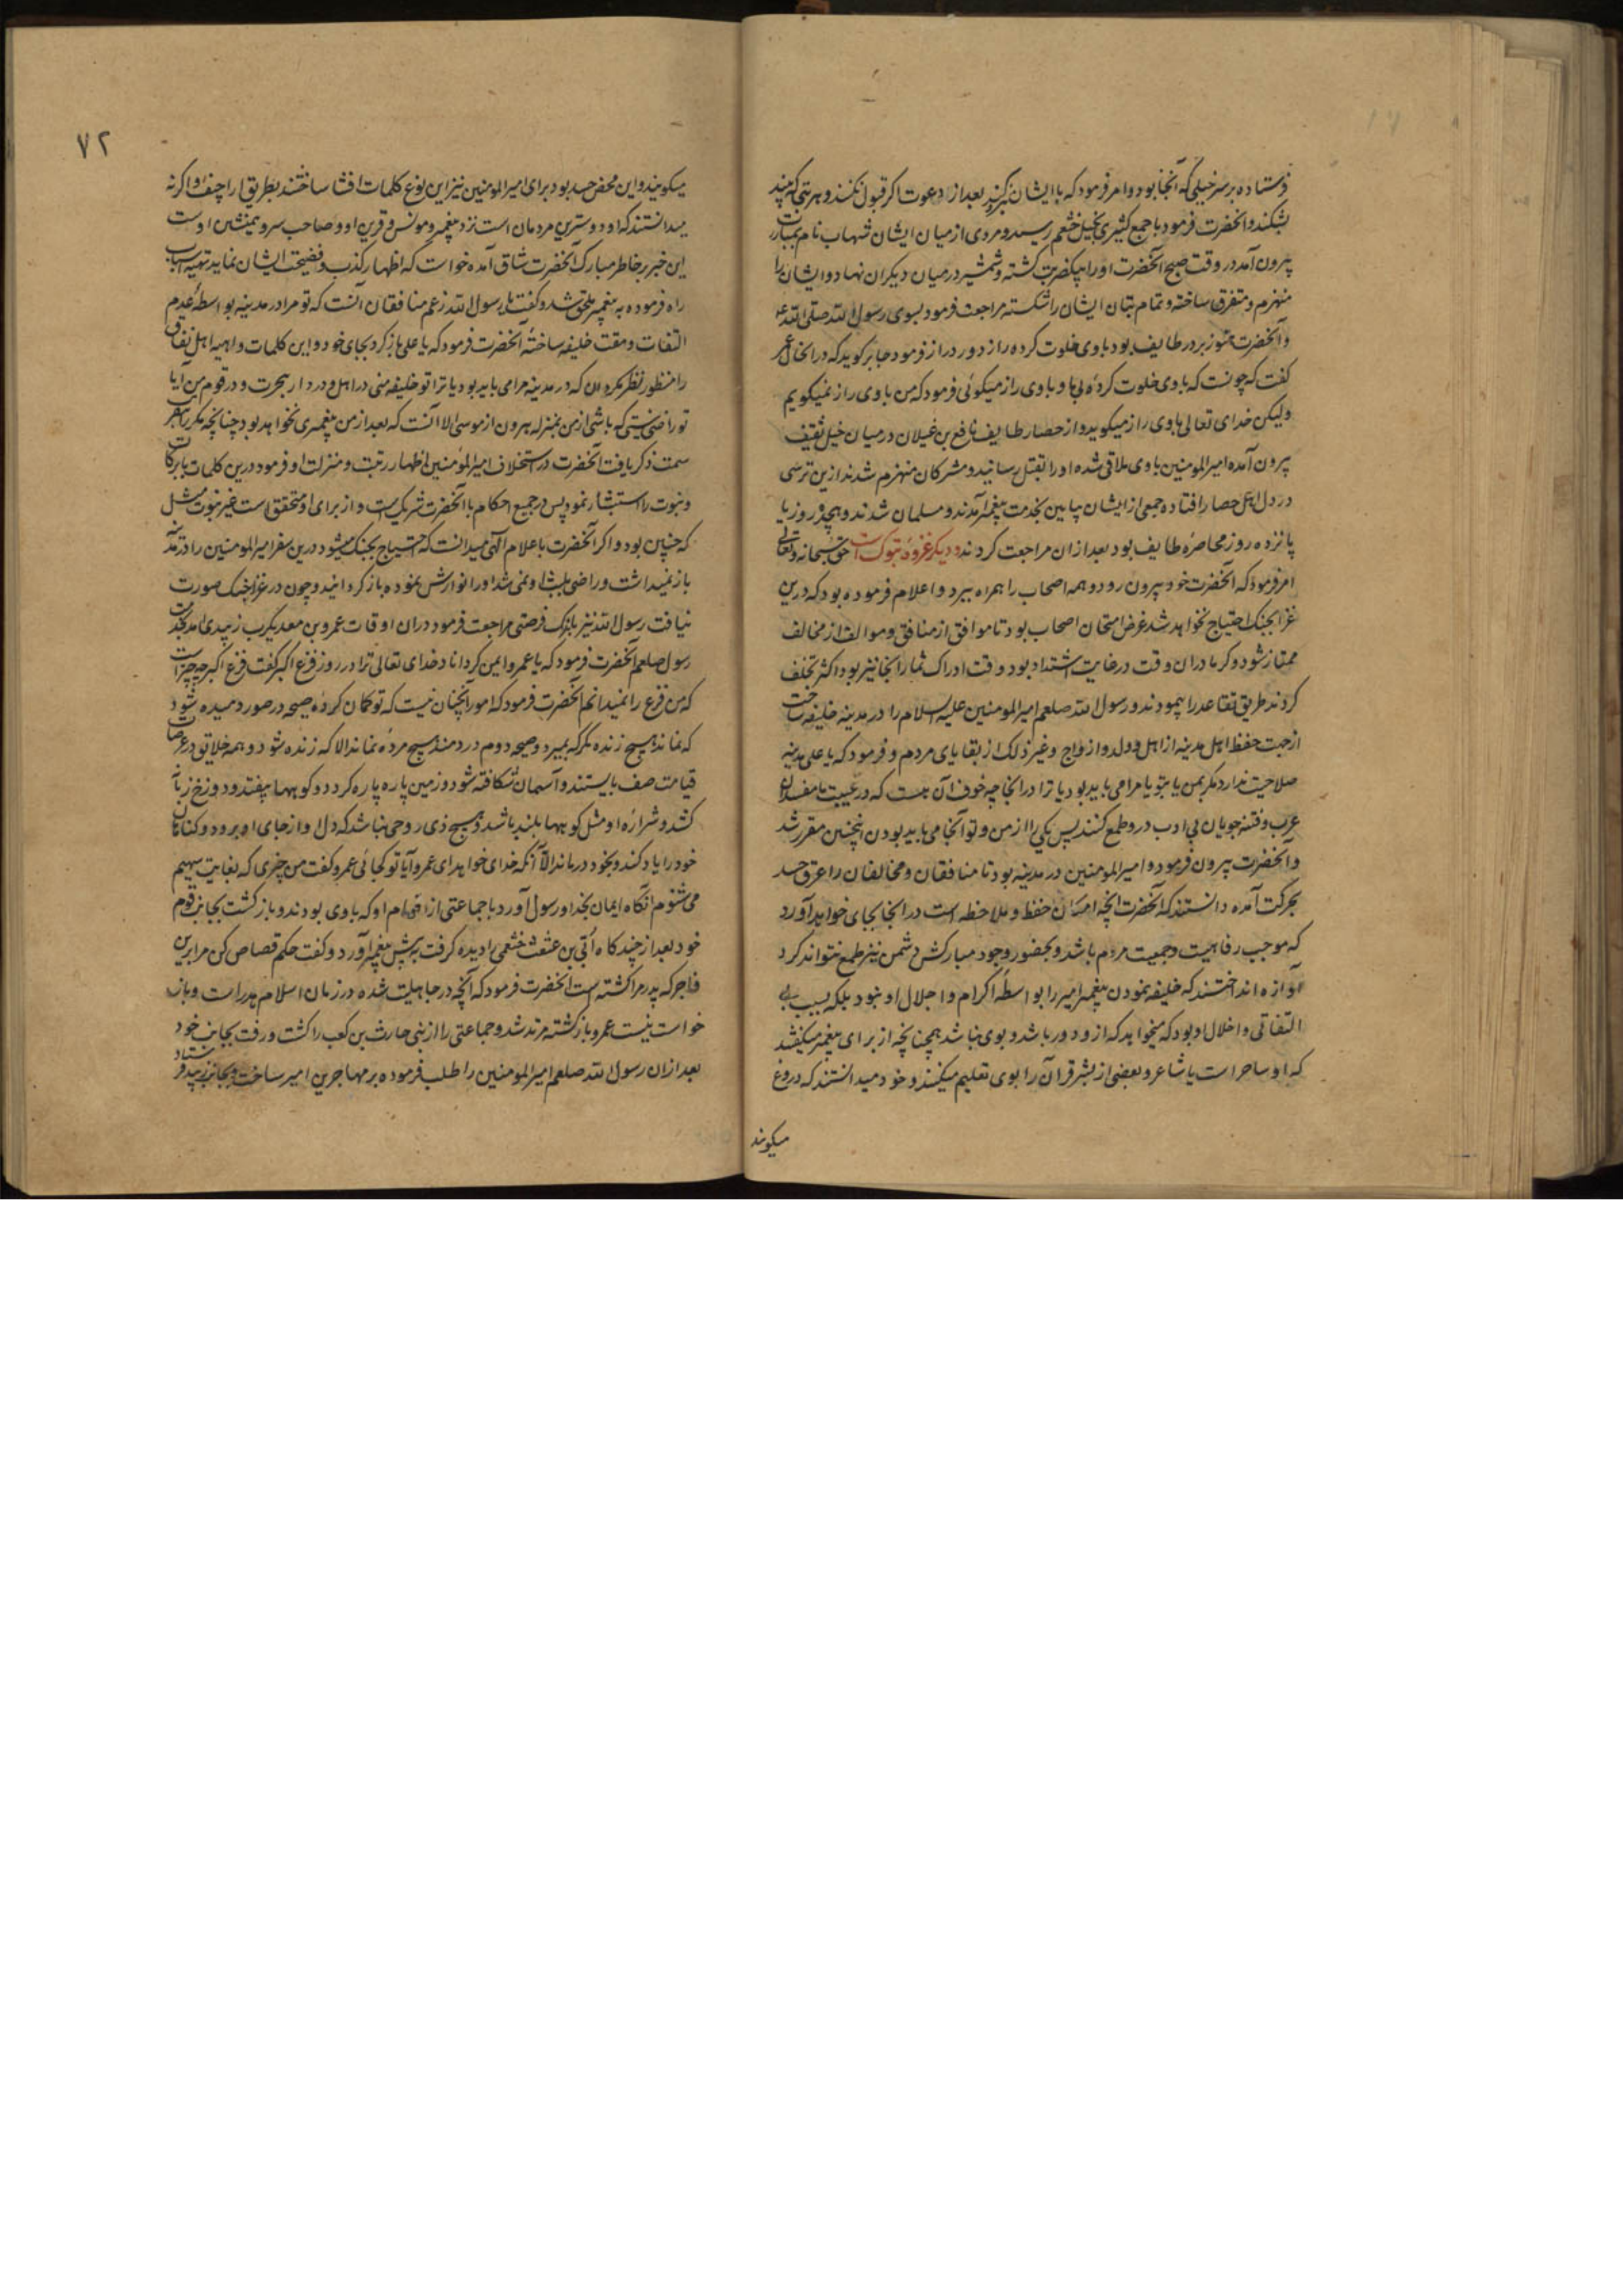 فرستاده بر سر خیلی که آنجا بود و امر فرمود که با ایشان بعد از دعوت اگر قبول نکنند و هر بتی که بیند
بشکند و آنحضرت فرمود با جمع کثیری بخیل خثعم رسید و مردی از میان ایشان شهاب نام بمبارزت
بیرون آمد در وقت صبح آنحضرت او را بیکضربت کشته و شمشیر در میان دیگران نهاد و ایشان را
منهزم و متفرق ساخته و تمام بتان ایشان را شکسته مراجعت فرمود بسوی رسول الله صلی الله علیه
و آنحضرت هنوز بر در طایف بود با وی خلوت کرده راز دور دراز فرمود جابر کوید که در انحال عمر
کفت که چونست که با وی خلوت کردهٔ بی ما و با وی راز میکوئی فرمود که من با وی راز نمیکویم
ولیکن خدای تعالی با وی راز میکوید و از حصار طایف نافع بن غیلان در میان خیل ثقیف
بیرون آمده امیرالمومنین با وی ملاقی شده او را بقتل رسانید و مشرکان منهزم شدند ازین ترسی
در دل اهل حصار افتاده جمعی از ایشان پایین بخدمت پیغمبر آمدند و مسلمان شدند و هیجده روز یا
پانزده روز محاصرهٔ طایف بود بعد ازان مراجعت کردند و دیکر غزوهٔ تبوک است حق سبحانه و تعالی
امر فرمود که آنحضرت خود بیرون رود و همه اصحاب را همراه ببرد و اعلام فرموده بود که درین
غزا بجنک احتیاج نخواهد شد غرض امتحان اصحاب بود تا موافق از منافق و موالف از مخالف
ممتاز شود و کرما دران وقت در غایت اشتداد بود و وقت ادراک ثمار آنجا نیز بود اکثر تخلف
کردند طریق تقاعد را پیمودند و رسول الله صلعم امیرالمومنین علیه السلام را در مدینه خلیفه ساخت
از جهت حفظ اهل مدینه از اهل و ولد و ازواج و غیر ذلک از بقایای مردم و فرمود که یا علی مدینه
صلاحیت ندارد مکر بمن یا بتو یا مرا می باید بود یا ترا در انجا چه خوف آن هست که در غیبت ما مفسدان
عرب و فتنه جویان بی ادب درو طمع کنند پس یکی را از من و تو آنجا می باید بودن اینچنین مقرر شد
و آنحضرت بیرون فرمود و امیرالمومنین در مدینه بود تا منافقان و مخالفان را عرق حسد
بحرکت آمده دانستند که آنحضرت آنچه امکان حفظ و ملاحظه است در انجا بجای خواهد آورد
که موجب رفاهیت و جمعیت مردم باشد و بحضور وجود مبارکش دشمن نیز طمع نتواند کرد
آوازه انداختند که خلیفه نمودن پیغمبر امیر را بواسطه اکرام و اجلال او نبود بلکه بسبب بی
التفاتی و اخلال او بود که میخواهد که ازو دور باشد و بوی نباشد همچنانچه از برای پیغمبر میکفتند
که او ساحر است یا شاعر و بعضی از بشر قرآن را بوی تعلیم میکنند و خود میدانستند که دروغ
میکویند
۷۲
میکویند و این محض حسد بود برای امیرالمومنین نیز این نوع کلمات افشا ساختند بطریق اراجیف و اکرنه
میدانستند که او دوسترین مردمان است نزد پیغمبر و مونس و قرین او و صاحب سر و همنشین اوست
این خبر بر خاطر مبارک آنحضرت شاق آمده خواست که اظهار کذب و فضیحت ایشان نماید تهیه اسباب
راه فرموده به پیغمبر ملحق شد و کفت یا رسول الله زعم منافقان آنست که تو مرا در مدینه بواسطهٔ عدم
التفات و مقت خلیفه ساختهٔ آنحضرت فرمود که یا علی باز کرد بجای خود و این کلمات واهیه اهل نفاق
را منظور نظر مکردان که در مدینه مرا می باید بود یا ترا تو خلیفه منی در اهل و در دار هجرت و در قوم من آیا
تو راضی نیستی که باشی از من بمنزله هرون از موسی الا آنست که بعد از من پیغمبری نخواهد بود چنانچه مکررا
سمت ذکر یافت آنحضرت در استخلاف امیرالمومنین اظهار رتبت و منزلت او فرمود درین کلمات بابرکات
و نبوت را استثنا نمود پس در جمیع احکام با آنحضرت شریک است و از برای او متحقق است غیر نبوت مثل
که چنین بود و اکر آنحضرت باعلام آلهی میدانست که احتیاج بجنک میشود درین سفر امیرالمومنین را در مدینه
باز نمیداشت و راضی بلبث او نمی شد او را نوازش نموده باز کردانید و چون در غزا جنک صورت
نیافت رسول الله نیز باندک فرصتی مراجعت فرمود دران اوقات عمرو بن معدیکرب زبیدی امد بخدمت
رسول صلعم آنحضرت فرمود که یا عمرو ایمن کرداناد خدای تعالی ترا در روز فزع اکبر کفت فزع اکبر چه چیز است
که من فزع را نمیدانم آنحضرت فرمود که امور آنچنان نیست که تو کمان کردهٔ صیحه در صور دمیده شود
که نماند هیچ زنده مکر که بمیرد و صیحه دوم در دمند هیچ مرده نماند الا که زنده شود و همه خلایق در عرصات
قیامت صف بایستند و آسمان شکافته شود و زمین پاره پاره کردد و کوهها بیفتد و دوزخ زبانه
کشد و شراره او مثل کوهها بلند باشد و هیچ ذی روحی نباشد که دل او از جای او برود و کناهان
خود را یاد کند و بخود درماند الا آنکه خدای خواهد ای عمرو آیا تو کجائی عمرو کفت من چیزی که بغایت سهیم
می شنوم آنگاه ایمان بخدا و رسول آورد با جماعتی از اقوام او که با وی بودند و باز کشت بجانب قوم
خود بعد از چند کاه ابی بن عثعث خثعمی را دیده کرفت به پیش پیغمبر آورد و کفت حکم قصاص کن مرا برین
فاجر که پدر مرا کشته است آنحضرت فرمود که آنچه در جاهلیت شده در زمان اسلام هدر است و باز
خواست نیست عمرو باز کشته مرتد شد و جماعتی را از بنی حارث بن کعب را کشت و رفت بجانب خود
بعد ازان رسول الله صلعم امیرالمومنین را طلب فرموده بر مهاجرین امیر ساخت و بجانب زبید فرستاد